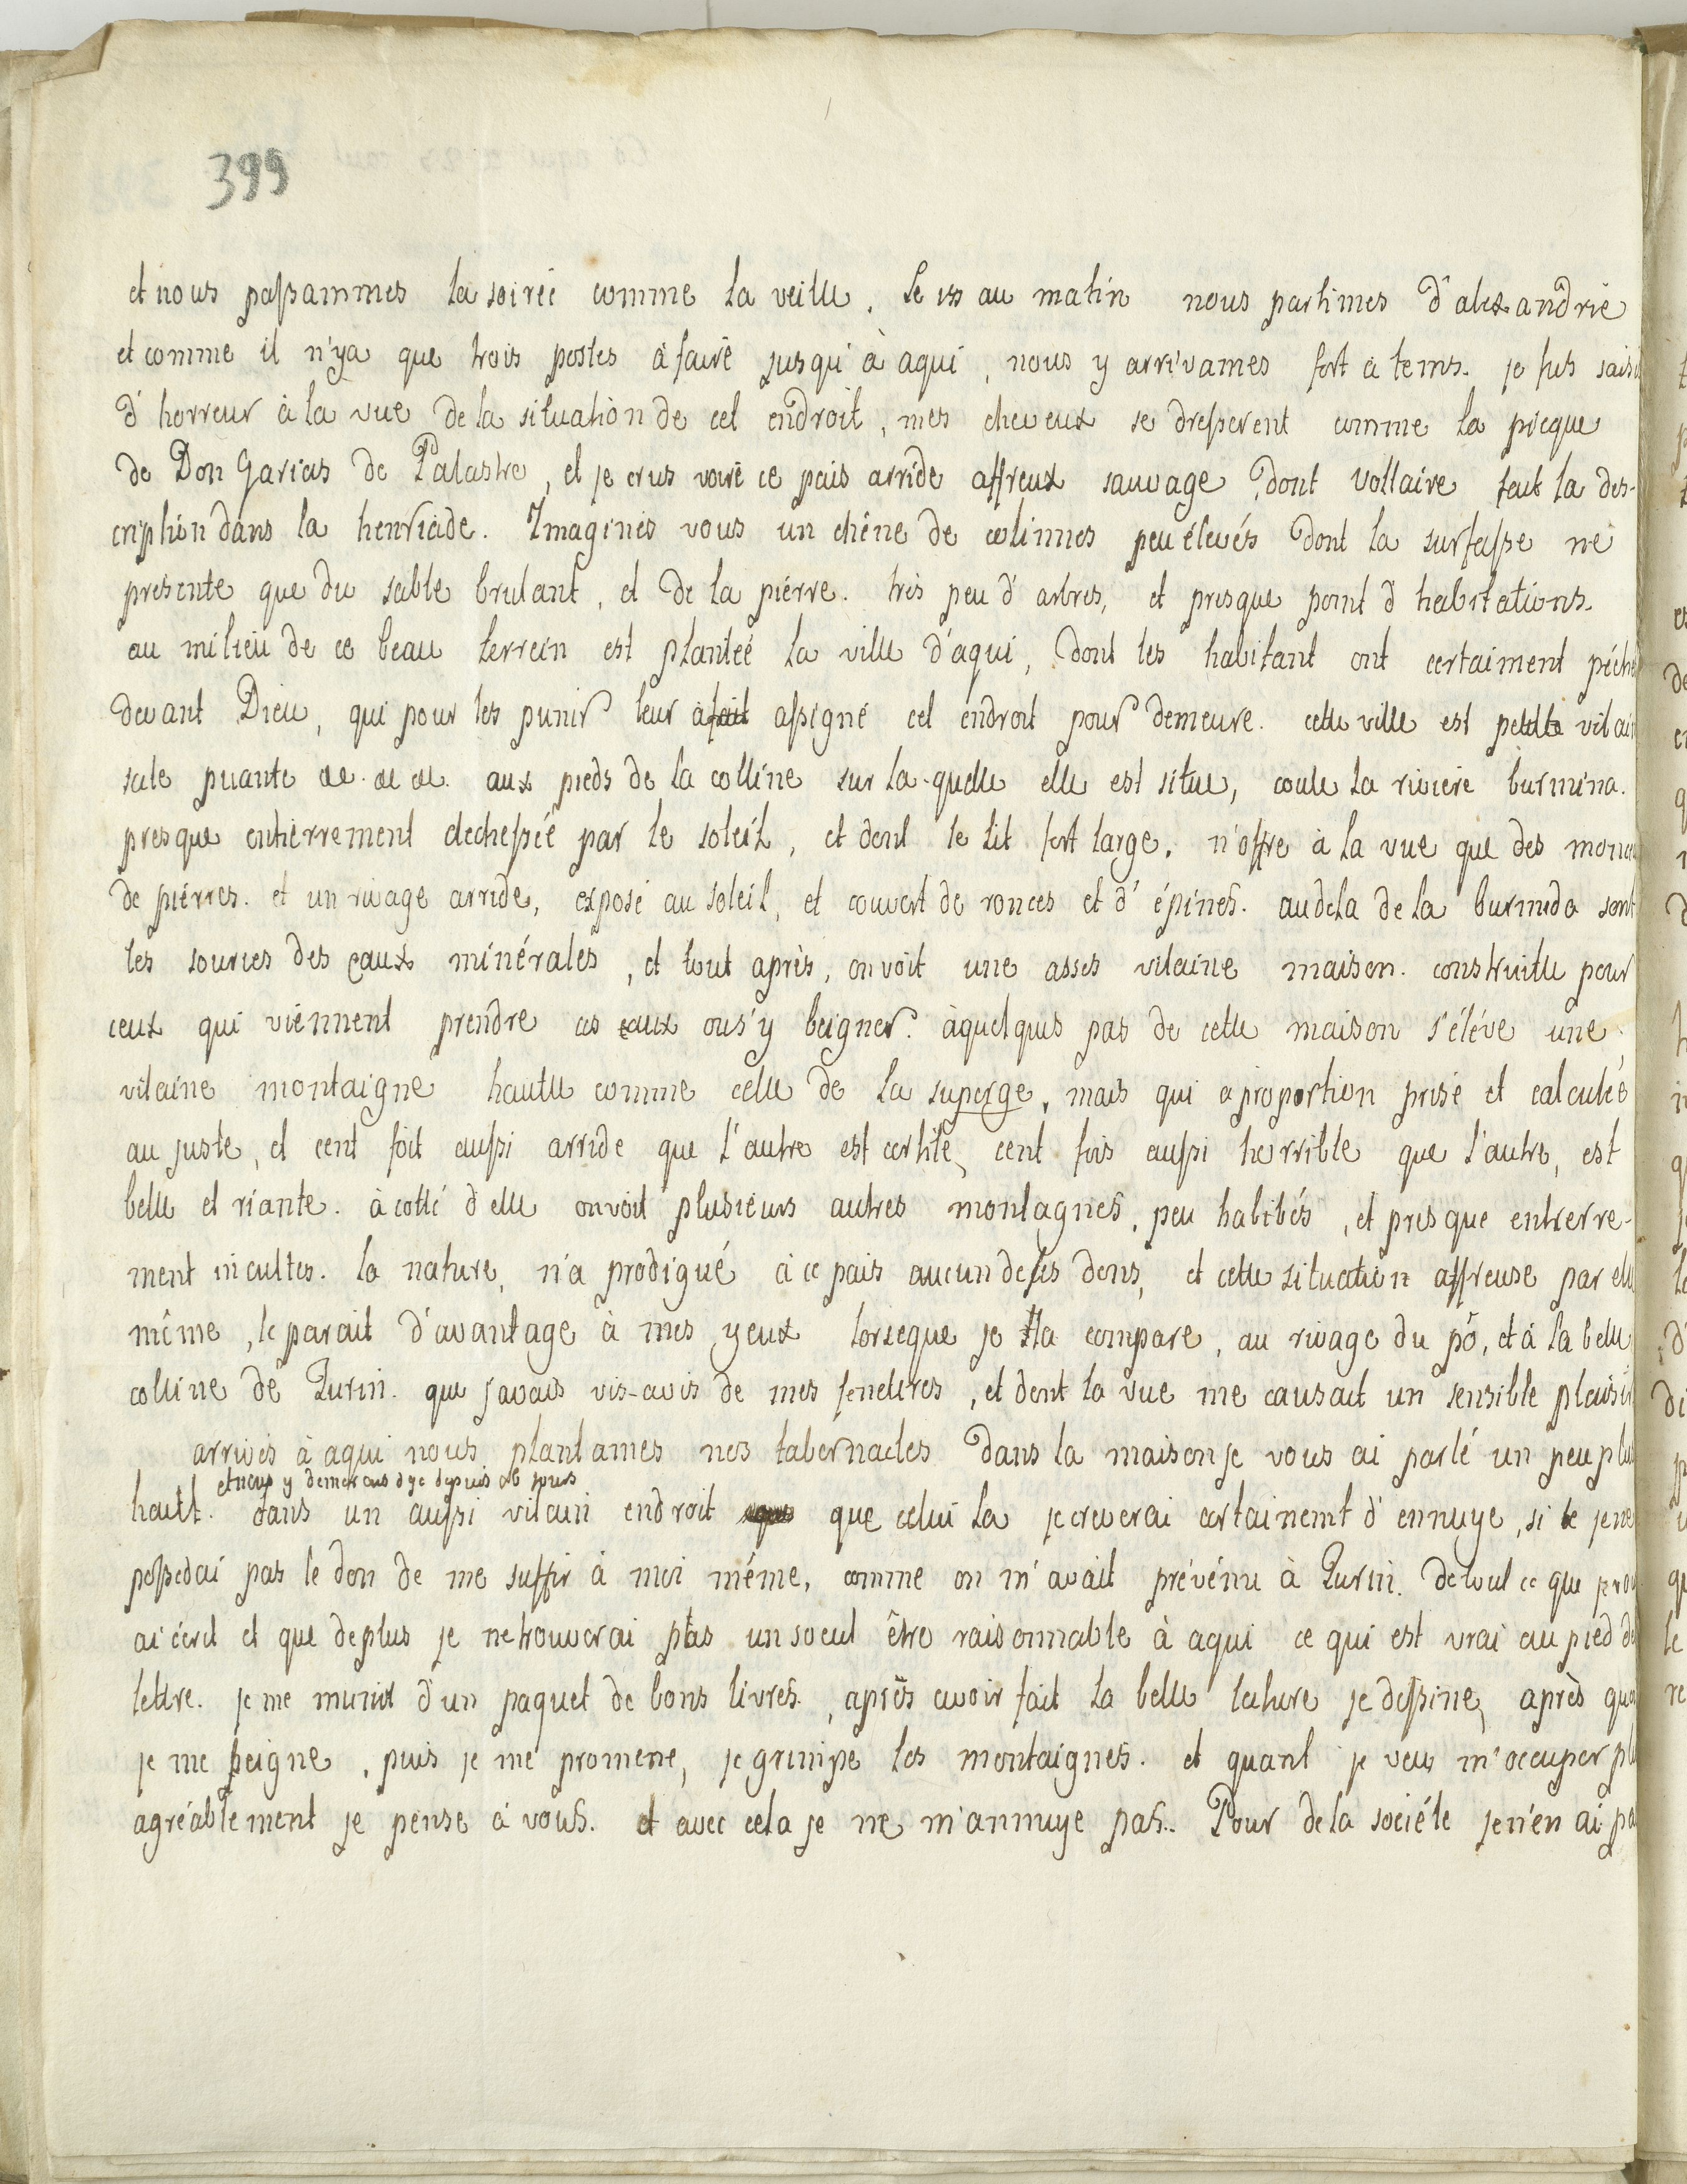 399
et nous passammes la soireé comme la veille. Le 13 au matin nous partimes d'alexandrie
et comme il n'ya que trois postes à faire jusqui à aqui, nous y arrivames fort a tems. je fus saisi
d'horreur à la vue de la situation de cet endroit, mes cheveux se dresserent comme la picque
de Don Garias de Palastre, et je crus voire ce pais arride affreux sauvage, dont voltaire fait la des-
cription dans la henriade. Imagines vous un chêne de colinnes peu élevés dont la surfasse ne
presente que du sable brulant, et de la piérre. trés peu d'arbres, et presque point d'habitations.
au milieu de ce beau terrein est plantée la ville d'aqui, dont les habitant ont certaiment péché
devant Dieu, qui pour les punir leur a fait assigné cet endroit pour demeure. cette ville est petitte vilain
sale puante &c. &c &c. aux pieds de la colline sur la-quelle elle est situe, coule la riviere burmina.
presque entiérrement dechessée par le soleil, et dont le lit fort large, n'offre à la vue que des
de piérres. et un rivage arride, exposé au soleil, et couvert de ronces et d'épines. audela de la burmida sont
les sources des eaux minérales, et tout après, on voit une asses vilaine maison. construitte pour
ceux qui viénnent prendre ces eaux ou s'y baigner. à quelques pas de cette maison s'éléve une
vilaine montaigne hautte comme celle de la superge, mais qui a proportion prise et calculée
au juste, et cent foit aussi arride que l'autre est certile, cent fois aussi horrible que l'autre, est
belle et riante. à cotté d'elle on voit plusieurs autres montagnes, peu habités, et presque entierre-
ment incultes. la nature, n'a prodigué à ce pais aucun de ses dons, et cette situation affreuse par elle
même, le parait d'avantage à mes yeux lorseque je la compare, au rivage du pô, et à la belle
colline de Turin. que j'avais vis-avis de mes fenetres, et dont la vue me causait un sensible plaisir
arrivés à aqui nous plantames nos tabernacles dans la maison je vous ai parlé un peu plus
et nous y demeurons deje depuis 26 jours
hautt. dans un aussi vilain endroit que celui la je creverai certainemt d'ennuye, si je ne
possedai pas le don de me suffir à moi même, comme on m'avait prévénu à Turin. de tout ce que je vous
ai écrit et que deplus je ne trouverai pas un soeul être raisonnable à aqui ce qui est vrai au pied de
lettre. je me munit d'un paquet de bons livres., après avoir fait la belle lecture je dessine, après quoi
je me peigne, puis je me promene, je grimpe les montaignes. et quant je veus m'occuper plus
agréablement je pense à vous. et avec cela je ne m'annuye pas. Pour de la sociéte je n'en ai pa